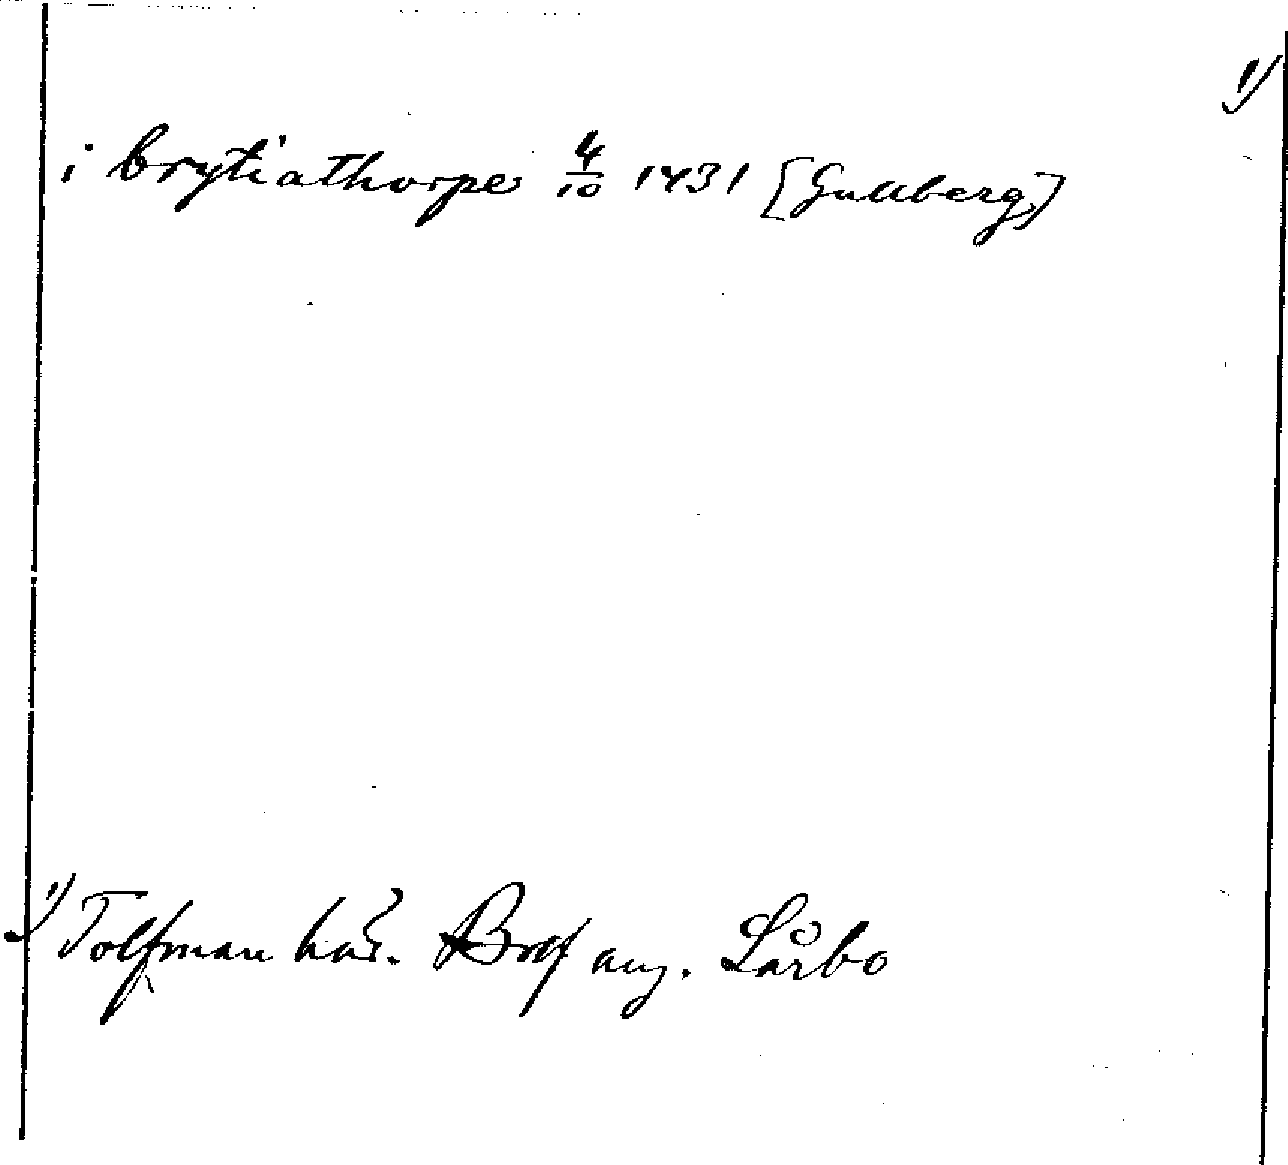 1)
i brytiathorpe 4/10 1431 [Gullberg]
1) Tolfman har. Brof ang. Lårbo